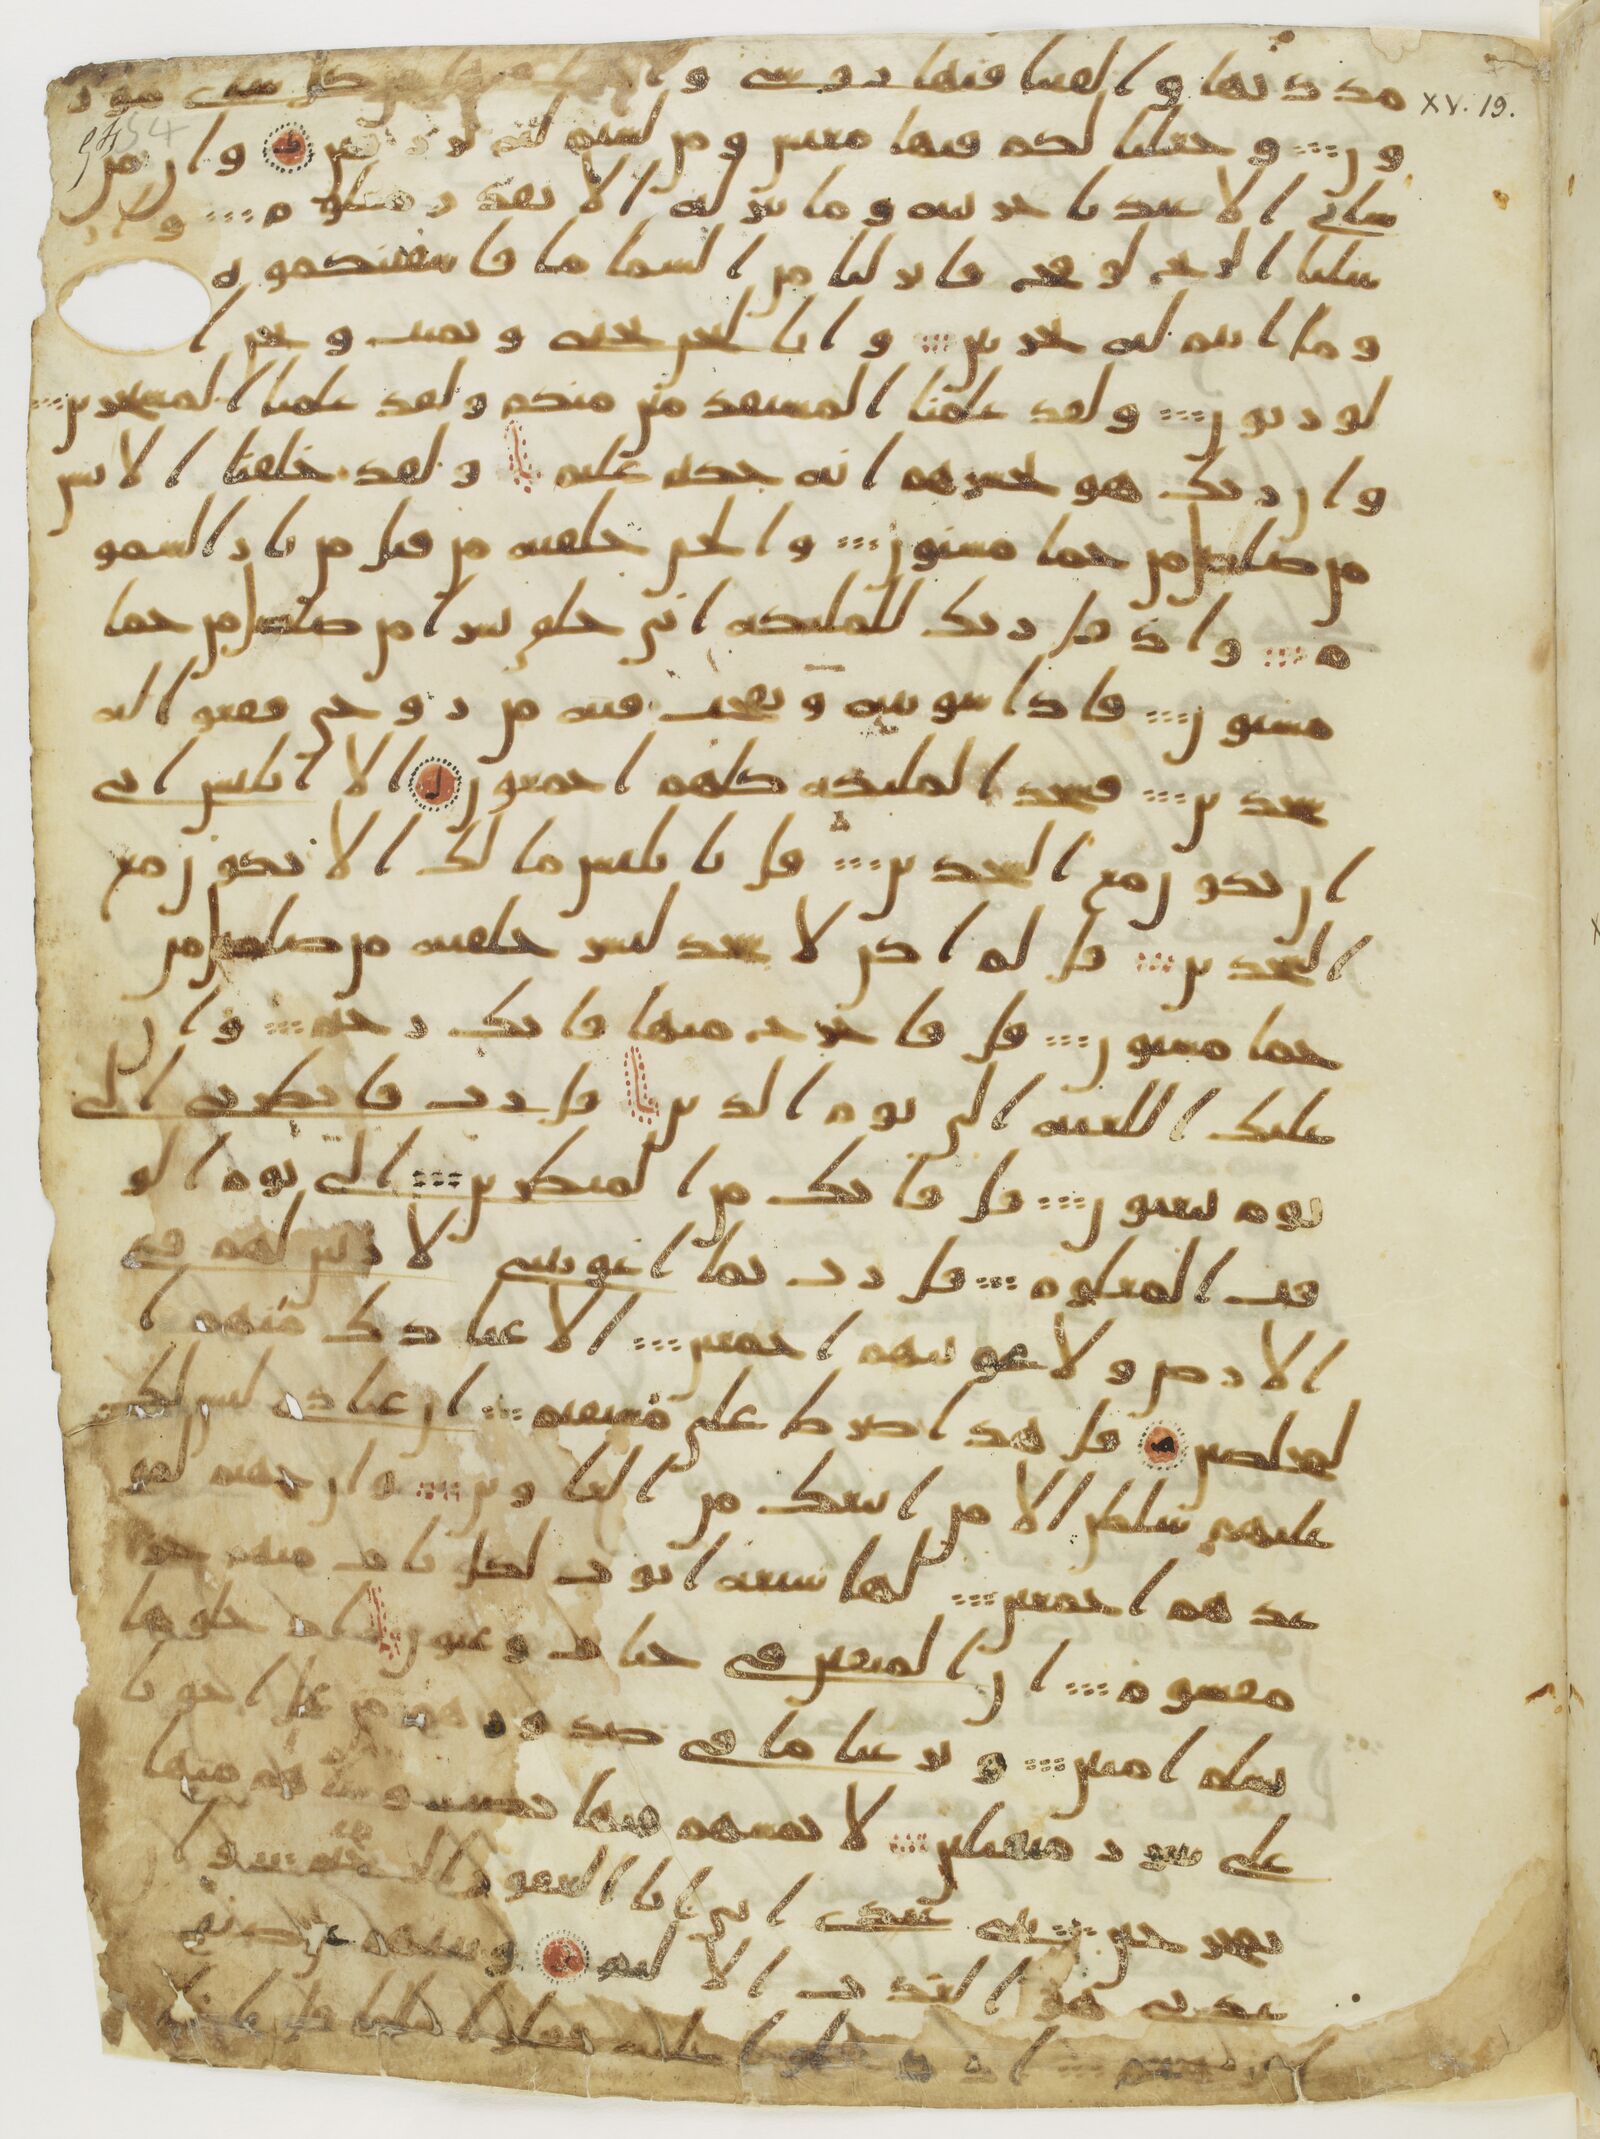 XV. 19.
54
مددنها والقينا فيها روسي وانبتنا فيها من كل شي موز
ون وجعلنا لكم فيها معيش ومن لستم له برزقين وان من
شاي الا عندنا خزينه وما ننزله الا بقدر معلوم وار
سلنا الريح لوقح فانزلنا من السما ما فاسقينكموه
وما انتم له بخزنين وانا لنحن نحي ونميت ونحن ا
لورثون ولقد علمنا المستقدمين منكم ولقد علمنا المستخرين
وان ربك هو يحشرهم انه حكيم عليم ولقد خلقنا الانسن
من صلصل من حما مسنون والجن خلقنه من قبل من نار السمو
م واذ قل ربك للمليكه اني خلق بشرا من صلصل من حما
مسنون فاذا سويته ونفخت فيه من روحي فقعوا له
سجدين فسجد المليكه كلهم اجمعون الا ابليس ابي
ان يكون مع السجدين قل يابليس ما لك الا تكون مع
السجدين قل لم اكن لاسجد لبشر خلقته من صلصل من
حما مسنون قل فاخرج منها فانك رجيم وان
عليك اللعنه الي يوم الدين قل رب فانظرني الي
يوم يبعثون قل فانك من المنظرين الي يوم الو
قت المعلوم قل رب بما اغويتني لازينن لهم في
الارض ولاغوينهم اجمعين الا عبادك منهم ا
لمخلصين قل هذا صرط علي مستقيم ان عبادي ليس لك
عليهم سلطن الا من اتبعك من الغاوين وان جهنم لمو
عدهم اجمعين لها سبعه ابوب لكل باب منهم جزو
مقسوم ان المتقين في جنات وعيون ادخلوها
بسلم امنين ونزعنا ما في صدورهم من غل اخونا
علي سرر متقبلين لا يمسهم فيها نصب وما هم منها
بمخرجين نبي عبدي اني انا الغفور الرحيم وان
عذبي هو العذب الاليم ونبهم عن ضيف
ابرهيم اذ دخلوا عليه فقلوا سلما قل انا منكم